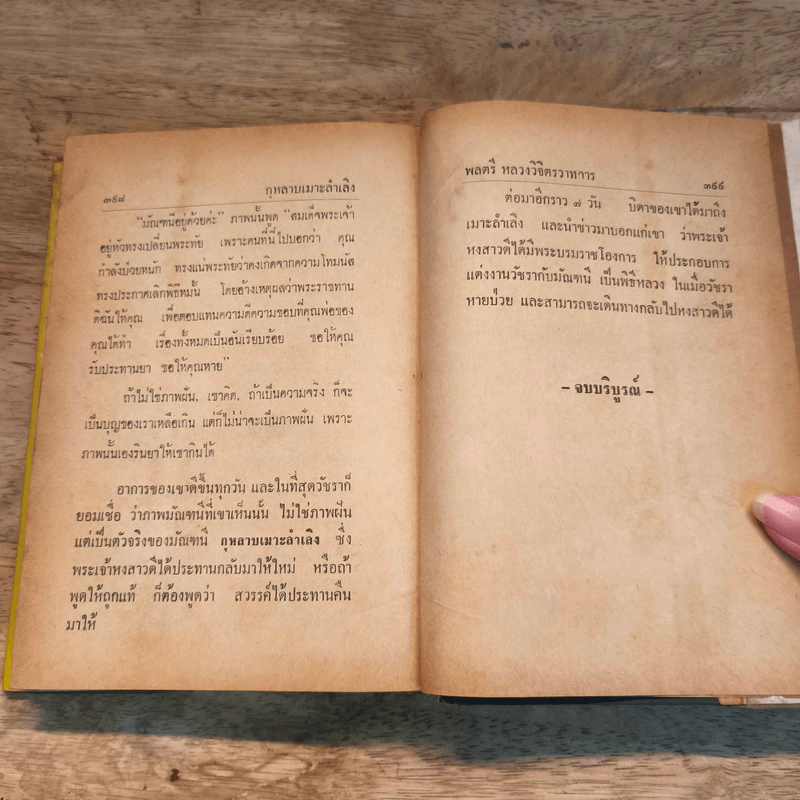 ๓๙๘ กุหลาบเมาะลำเลิง
"มัณฑนีอยู่ด้วยค่ะ" ภาพนั้นพูด "สมเด็จพระเจ้า
อยู่หัวทรงเปลี่ยนพระทัย เพราะคนที่นี่ไปบอกว่า คุณ
กำลังป่วยหนัก ทรงแน่พระทัยว่าคงเกิดจากความโทมนัส
ทรงประกาศเลิกพิธีหมั้น โดยอ้างเหตุผลว่าพระราชทาน
ดิฉันให้คุณ เพื่อตอบแทนความดีความชอบที่คุณพ่อของ
คุณได้ทำ เรื่องทั้งหมดเป็นอันเรียบร้อย ขอให้คุณ
รับประทานยา ขอให้คุณหาย"
ถ้าไม่ใช่ภาพฝัน, เขาคิด, ถ้าเป็นความจริง ก็จะ
เป็นบุญของเราเหลือเกิน แต่ก็ไม่น่าจะเป็นภาพฝัน เพราะ
ภาพนั้นเองรินยาให้เขากินได้
อาการของเขาดีขึ้นทุกวัน และในที่สุดวัชราก็
ยอมเชื่อ ว่าภาพมัณฑนีที่เขาเห็นนั้น ไม่ใช่ภาพฝัน
แต่เป็นตัวจริงของมัณฑนี กุหลาบเมาะลำเลิง ซึ่ง
พระเจ้าหงสาวดีได้ประทานกลับมาให้ใหม่ หรือถ้า
พูดให้ถูกแท้ ก็ต้องพูดว่า สวรรค์ได้ประทานคืน
มาให้
พลตรี หลวงวิจิตรวาทการ ๓๙๙
ต่อมาอีกราว ๗ วัน บิดาของเขาได้มาถึง
เมาะลำเลิง และนำข่าวมาบอกแก่เขา ว่าพระเจ้า
หงสาวดีได้มีพระบรมราชโองการ ให้ประกอบการ
แต่งงานวัชรากับมัณฑนี เป็นพิธีหลวง ในเมื่อวัชรา
หายป่วย และสามารถจะเดินทางกลับไปหงสาวดีได้
– จบบริบูรณ์ –